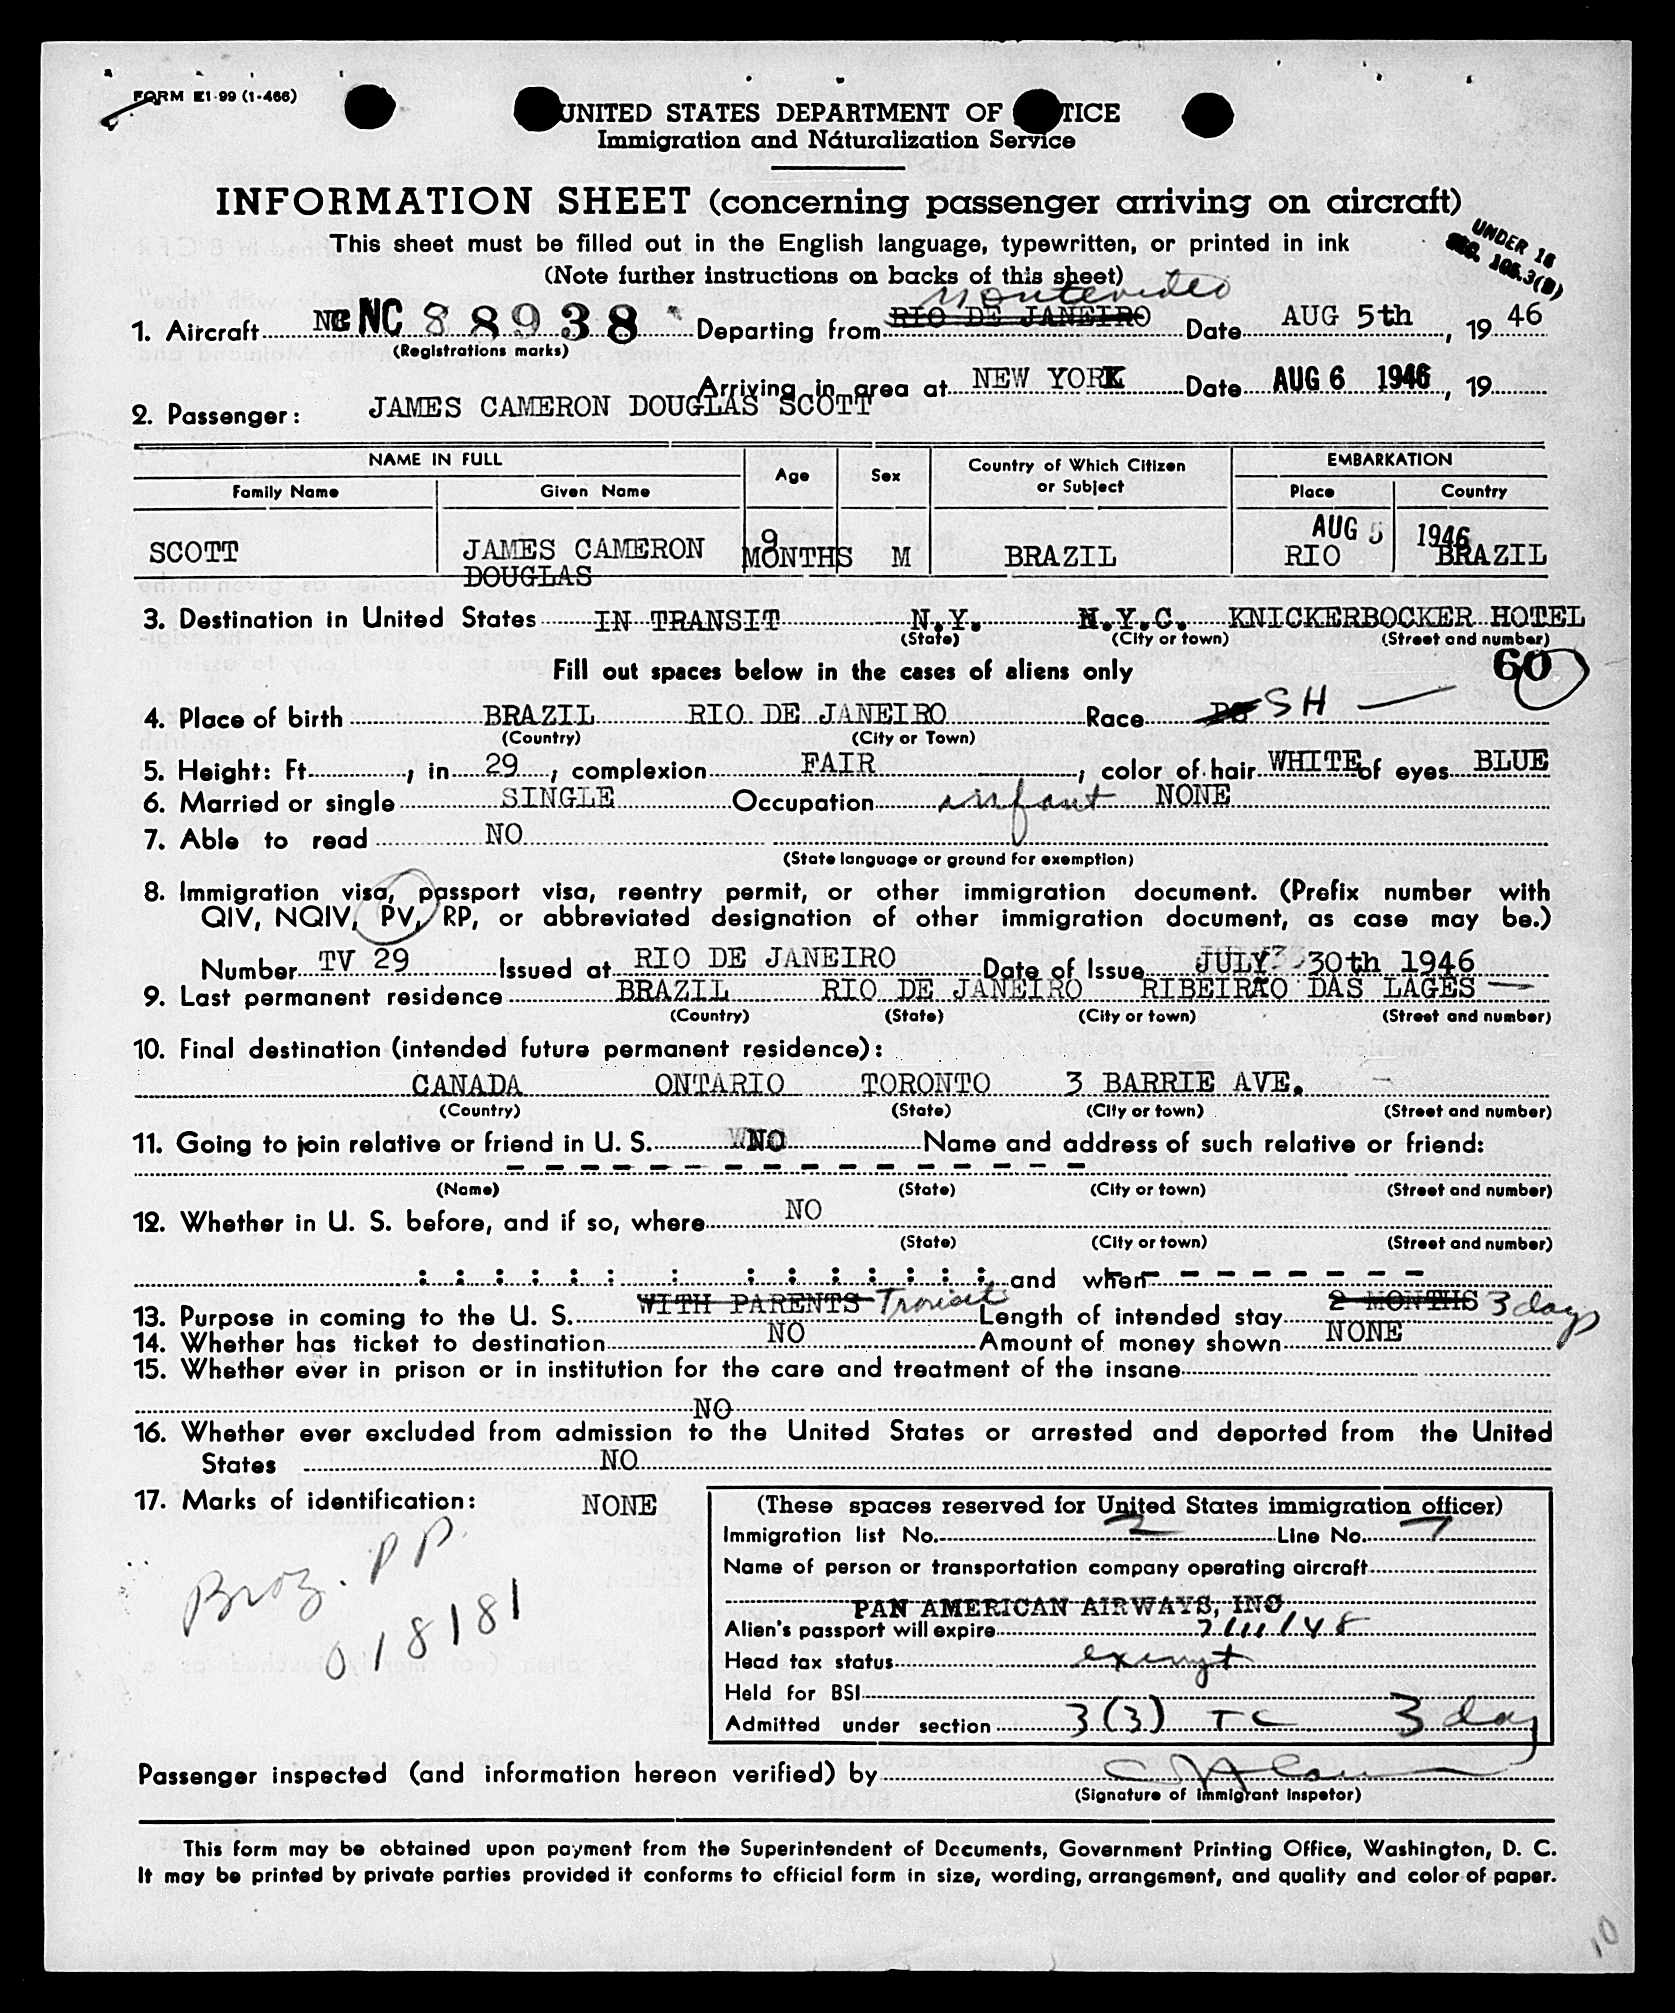 FORM E1-99 (1-466)
UNITED STATES DEPARTMENT OF TICE
Immigration and Naturalization Service
INFORMATION SHEET (concerning passenger arriving on aircraft)
This sheet must be filled out in the English language, typewritten, or printed in ink
(Note further instructions on backs of this sheet)
UNDER 16
SEC. 108.3(B)
Montevideo
1. Aircraft NC NC 88938 Departing from RIO DE JANEIRO Date AUG 5th, 19 46
(Registrations marks)
Arriving in area at NEW YORK Date AUG 6 1946, 19
2. Passenger: JAMES CAMERON DOUGLAS SCOTT
NAME IN FULL Age Sex Country of Which Citizen or Subject EMBARKATION
Family Name Given Name Place Country
AUG 5 1946
SCOTT JAMES CAMERON DOUGLAS 9 MONTHS M BRAZIL RIO BRAZIL
3. Destination in United States IN TRANSIT N.Y. N.Y.C. KNICKERBOCKER HOTEL
(State) (City or town) (Street and number)
Fill out spaces below in the cases of aliens only 60
4. Place of birth BRAZIL RIO DE JANEIRO Race SH
(Country) (City or Town)
5. Height: Ft. , in. 29 , complexion FAIR , color of hair WHITE of eyes BLUE
6. Married or single SINGLE Occupation infant NONE
7. Able to read NO
(State language or ground for exemption)
8. Immigration visa, passport visa, reentry permit, or other immigration document. (Prefix number with
QIV, NQIV, PV, RP, or abbreviated designation of other immigration document, as case may be.)
Number TV 29 Issued at RIO DE JANEIRO Date of Issue JULY 30th 1946
9. Last permanent residence BRAZIL RIO DE JANEIRO RIBEIRAO DAS LAGES
(Country) (State) (City or town) (Street and number)
10. Final destination (intended future permanent residence):
CANADA ONTARIO TORONTO 3 BARRIE AVE.
(Country) (State) (City or town) (Street and number)
11. Going to join relative or friend in U. S. NO Name and address of such relative or friend:
(Name) (State) (City or town) (Street and number)
12. Whether in U. S. before, and if so, where NO
(State) (City or town) (Street and number)
and when
13. Purpose in coming to the U. S. WITH PARENTS Transit Length of intended stay 2 MONTHS 3 days
14. Whether has ticket to destination NO Amount of money shown NONE
15. Whether ever in prison or in institution for the care and treatment of the insane
NO
16. Whether ever excluded from admission to the United States or arrested and deported from the United
States NO
17. Marks of identification: NONE
Braz. PP
018181
(These spaces reserved for United States immigration officer)
Immigration list No. 2 Line No. 7
Name of person or transportation company operating aircraft
PAN AMERICAN AIRWAYS, INC
Alien's passport will expire
Head tax status exempt
Held for BSI
Admitted under section 3(3) TC 3 day
Passenger inspected (and information hereon verified) by
(Signature of Immigrant Inspetor)
This form may be obtained upon payment from the Superintendent of Documents, Government Printing Office, Washington, D. C.
It may be printed by private parties provided it conforms to official form in size, wording, arrangement, and quality and color of paper.
10